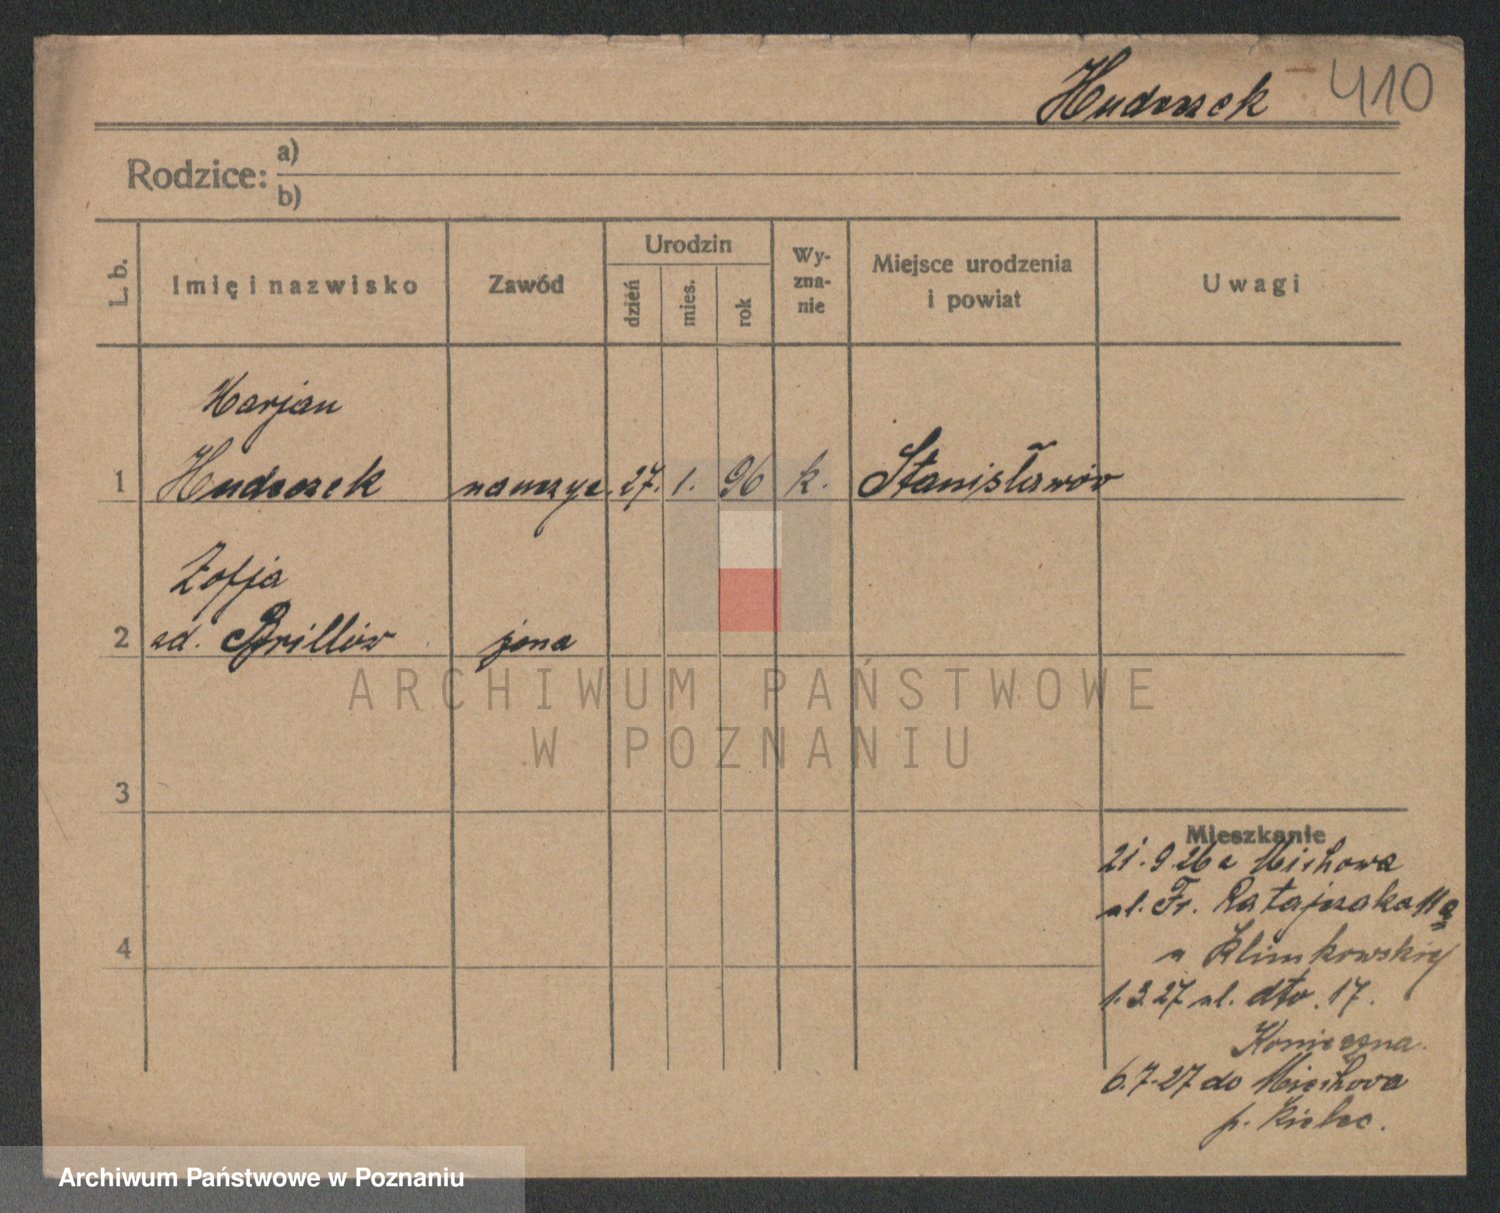 Hudeczek
410
Rodzice: a)
b)
L. b.
Imię i nazwisko
Zawód
Urodzin
dzień
mies.
rok
Wy-
zna-
nie
Miejsce urodzenia
i powiat
Uwagi
Marjan
1 Hudeczek nauczyc. 27. 1. 96 k. Stanisławów
Zofja
2 zd. Brillów żona
3
4
Mieszkanie
21.9 26 z Miechowa
ul. Fr. Ratajczaka 11a
u Klimkowskiej
1.3.27 ul. dto. 17.
Konieczna.
6.7.27 do Miechowa
p. Kielec.
ARCHIWUM PAŃSTWOWE
W POZNANIU
Archiwum Państwowe w Poznaniu